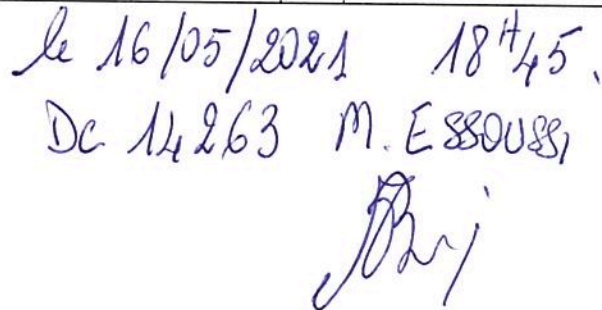 le 16/05/2021 18H45.
Dc 14263 M. ESSOUSSI